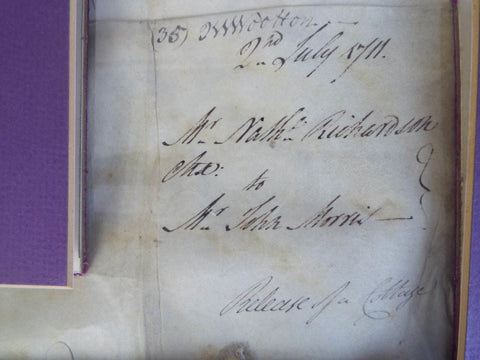 (35) Wootton.
2nd July 1711.
Mr. Nathl. Richardson
to
Mr. John Morris
Release of a Cottage